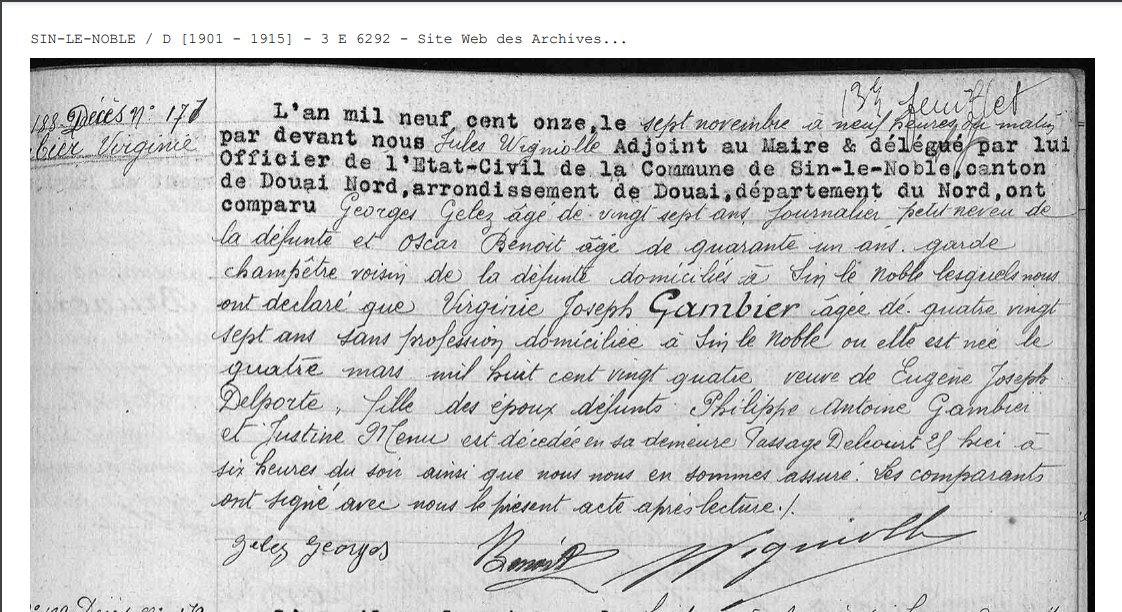 SIN-LE-NOBLE / D [1901 - 1915] - 3 E 6292 - Site Web des Archives...
133 feuillet
188 Décès n° 177
bier Virginie
L'an mil neuf cent onze, le sept novembre à neuf heures du matin
par devant nous Jules Vigniolle Adjoint au Maire & délégué par lui
Officier de l'Etat-Civil de la Commune de Sin-le-Noble, canton
de Douai Nord, arrondissement de Douai, département du Nord, ont
comparu Georges Gelez âgé de vingt sept ans journalier petit neveu de
la défunte et Oscar Benoit âgé de quarante un ans. garde
champêtre voisin de la défunte domiciliés à Sin le Noble lesquels nous
ont déclaré que Virginie Joseph Gambier âgée de quatre vingt
sept ans sans profession domiciliée à Sin le Noble ou elle est née le
quatre mars mil huit cent vingt quatre veuve de Eugène Joseph
Delporte, fille des époux défunts Philippe Antoine Gambier
et Justine Menu est décédée en sa demeure Passage Delcourt 25 hier à
six heures du soir ainsi que nous nous en sommes assuré. Les comparants
ont signé avec nous le présent acte après lecture./.
Gelez Georges Benoit Vigniolle